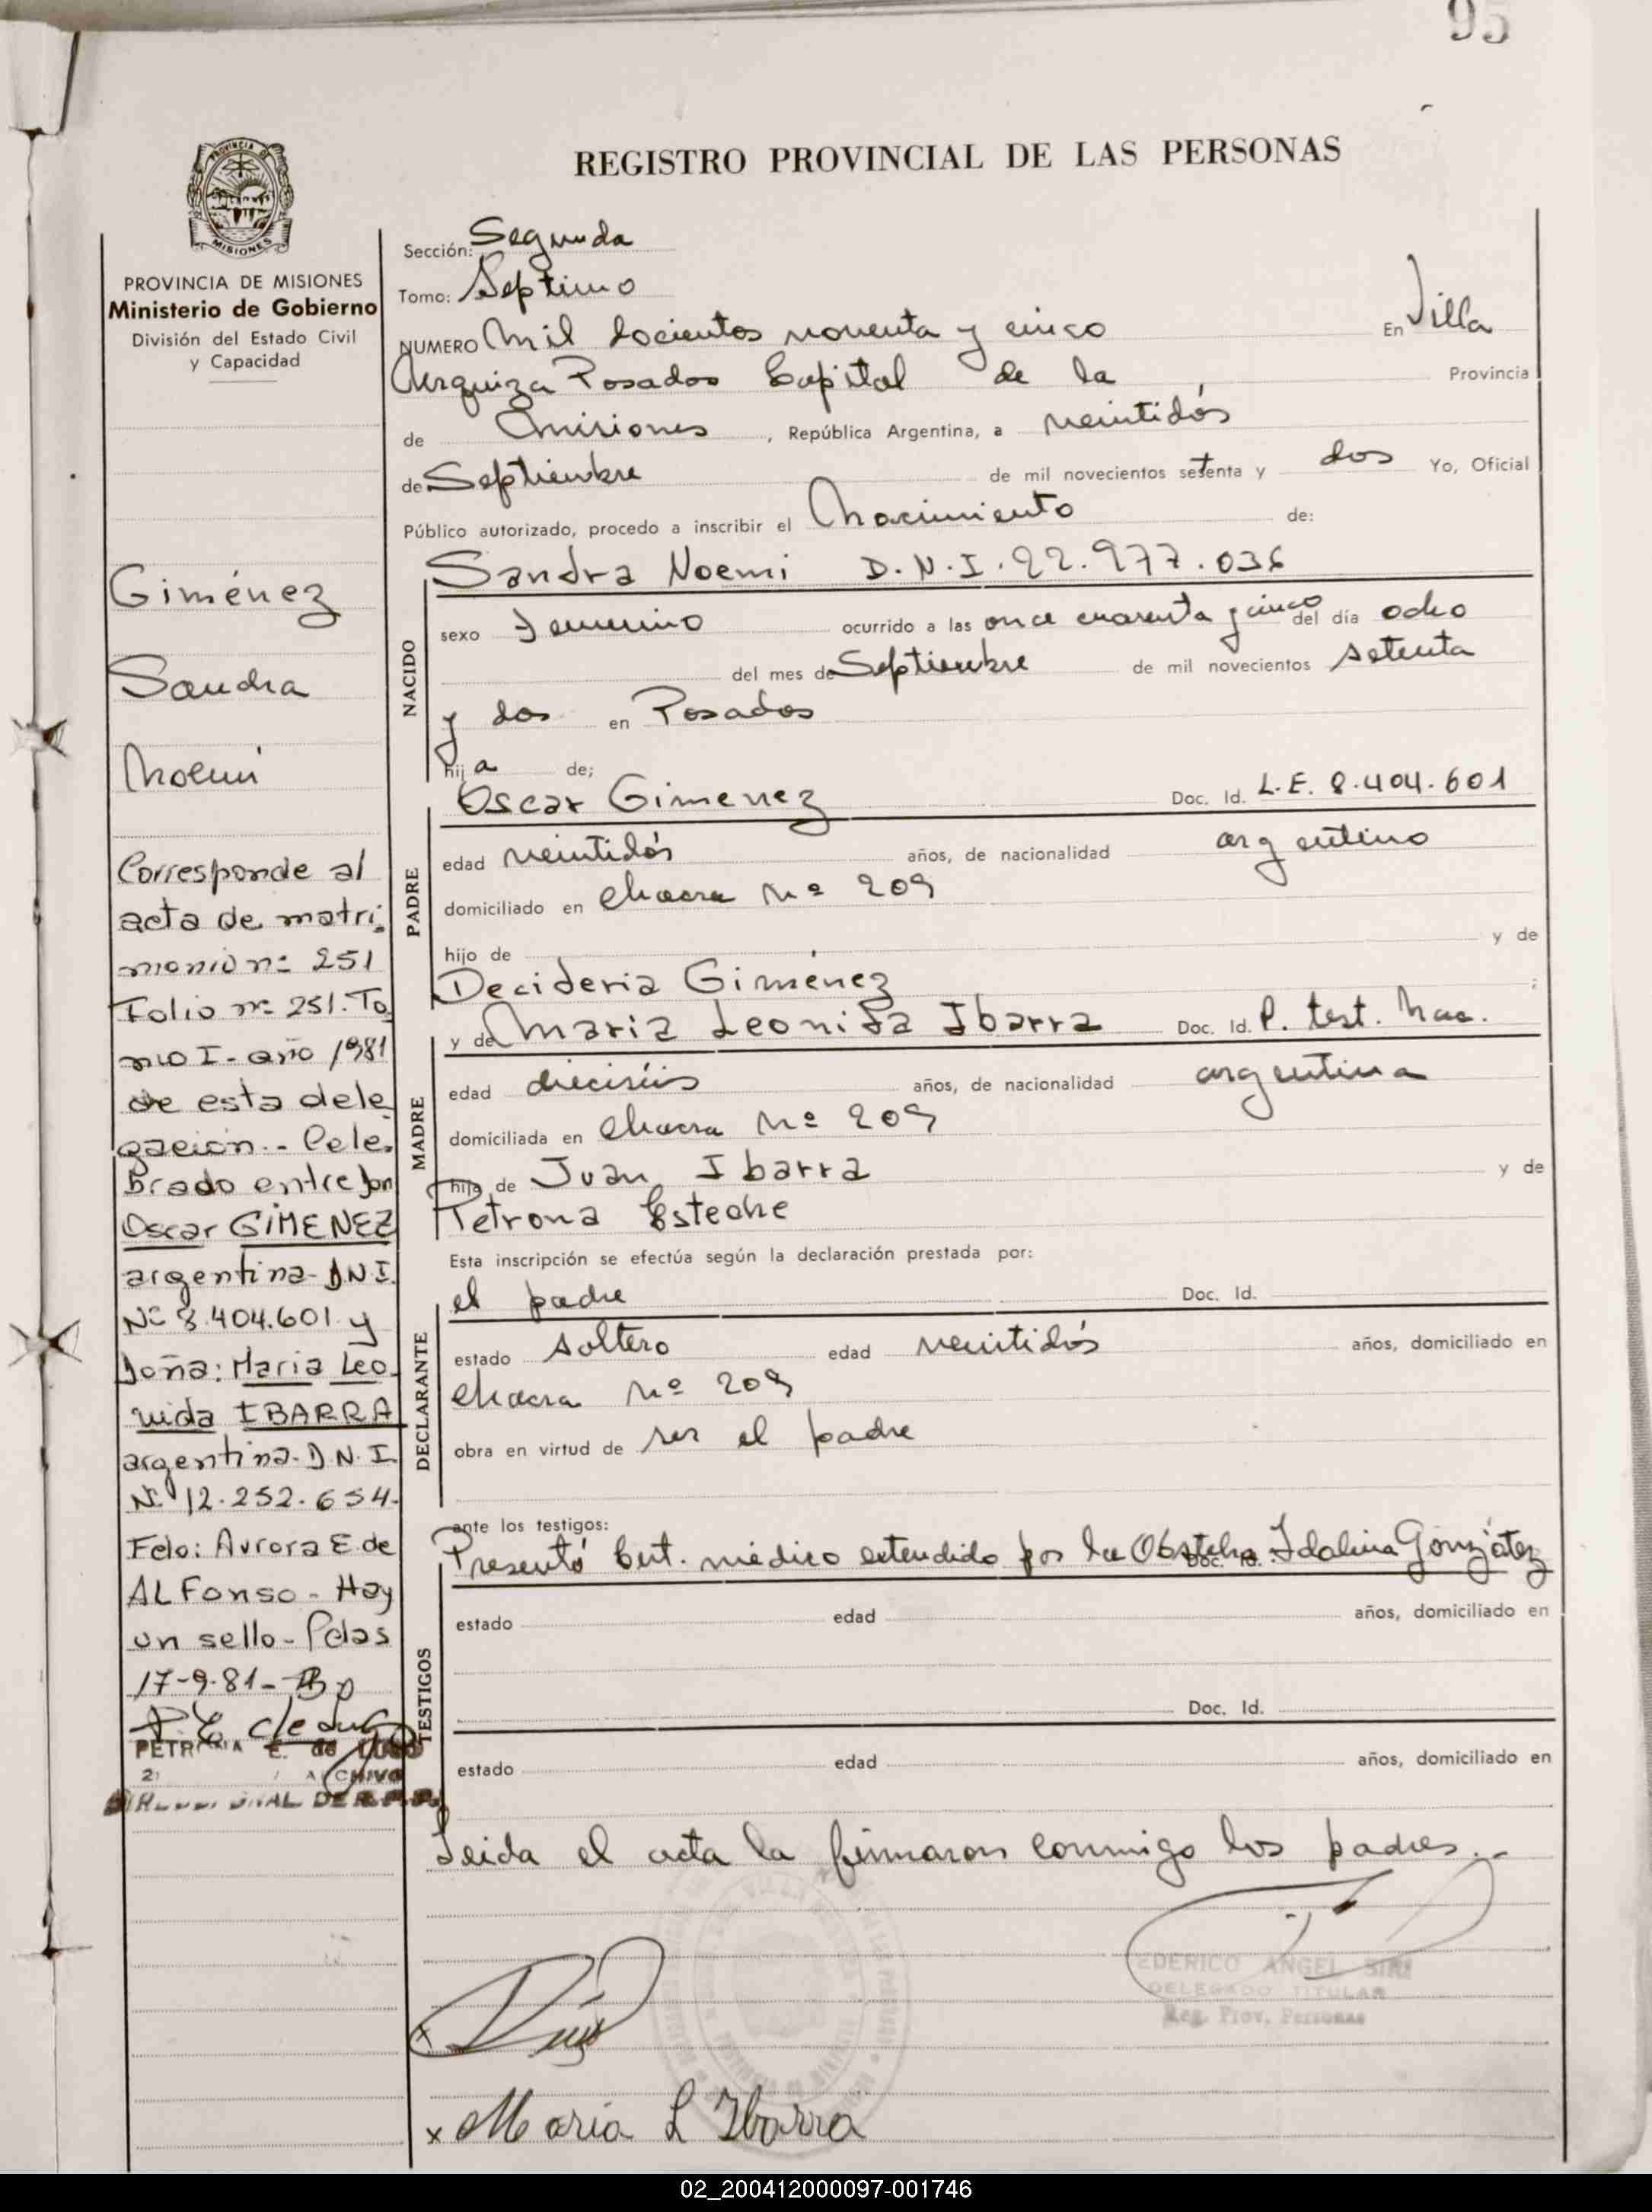 95
REGISTRO PROVINCIAL DE LAS PERSONAS
PROVINCIA DE MISIONES
Ministerio de Gobierno
División del Estado Civil
y Capacidad
Giménez
Sandra
Noemí
Corresponde al
acta de matri
monio nº 251
Folio nº 251. To
mo I - año 1981
de esta dele
gación.- Cele
brado entre Don
Oscar GIMENEZ
argentina - D.N.I.
Nº 8.404.601 y
Doña: Maria Leo
nida IBARRA
argentina - D.N.I.
Nº 12.252.654-
Fdo: Aurora E. de
ALFonso - Hay
un sello - Pdas
17-9-81-
Sección: Segunda
Tomo: Septimo
NUMERO Mil docientos noventa y cinco En Villa
Urquiza Posadas Capital de la Provincia
de Misiones, República Argentina, a veintidós
de Septiembre de mil novecientos setenta y dos Yo, Oficial
Público autorizado, procedo a inscribir el Nacimiento de:
NACIDO
Sandra Noemi D.N.I. 22.977.036
sexo Femenino ocurrido a las once cuarenta y cinco del día ocho
del mes de Septiembre de mil novecientos setenta
y dos en Posadas
hija de;
PADRE
Oscar Gimenez Doc. Id. L.E. 8.404.601
edad veintidós años, de nacionalidad argentino
domiciliado en chacra Nº 209
hijo de y de
Decideria Giménez ;
MADRE
y de Maria Leonida Ibarra Doc. Id. P. test. Nac.
edad dieciséis años, de nacionalidad argentina
domiciliada en chacra Nº 209
hija de Juan Ibarra y de
Petrona Esteche
Esta inscripción se efectúa según la declaración prestada por:
DECLARANTE
el padre Doc. Id.
estado soltero edad veintidós años, domiciliado en
chacra Nº 209
obra en virtud de ser el padre
ante los testigos:
TESTIGOS
Presentó Cert. médico extendido por la Obstetra Idalina González
Doc. Id.
estado edad años, domiciliado en
Doc. Id.
estado edad años, domiciliado en
Leida el acta la firmaron conmigo los padres.-
EDERICO ANGEL SIRI
DELEGADO TITULAR
Reg. Prov. Personas
x
x Maria L Ibarra
02_200412000097-001746